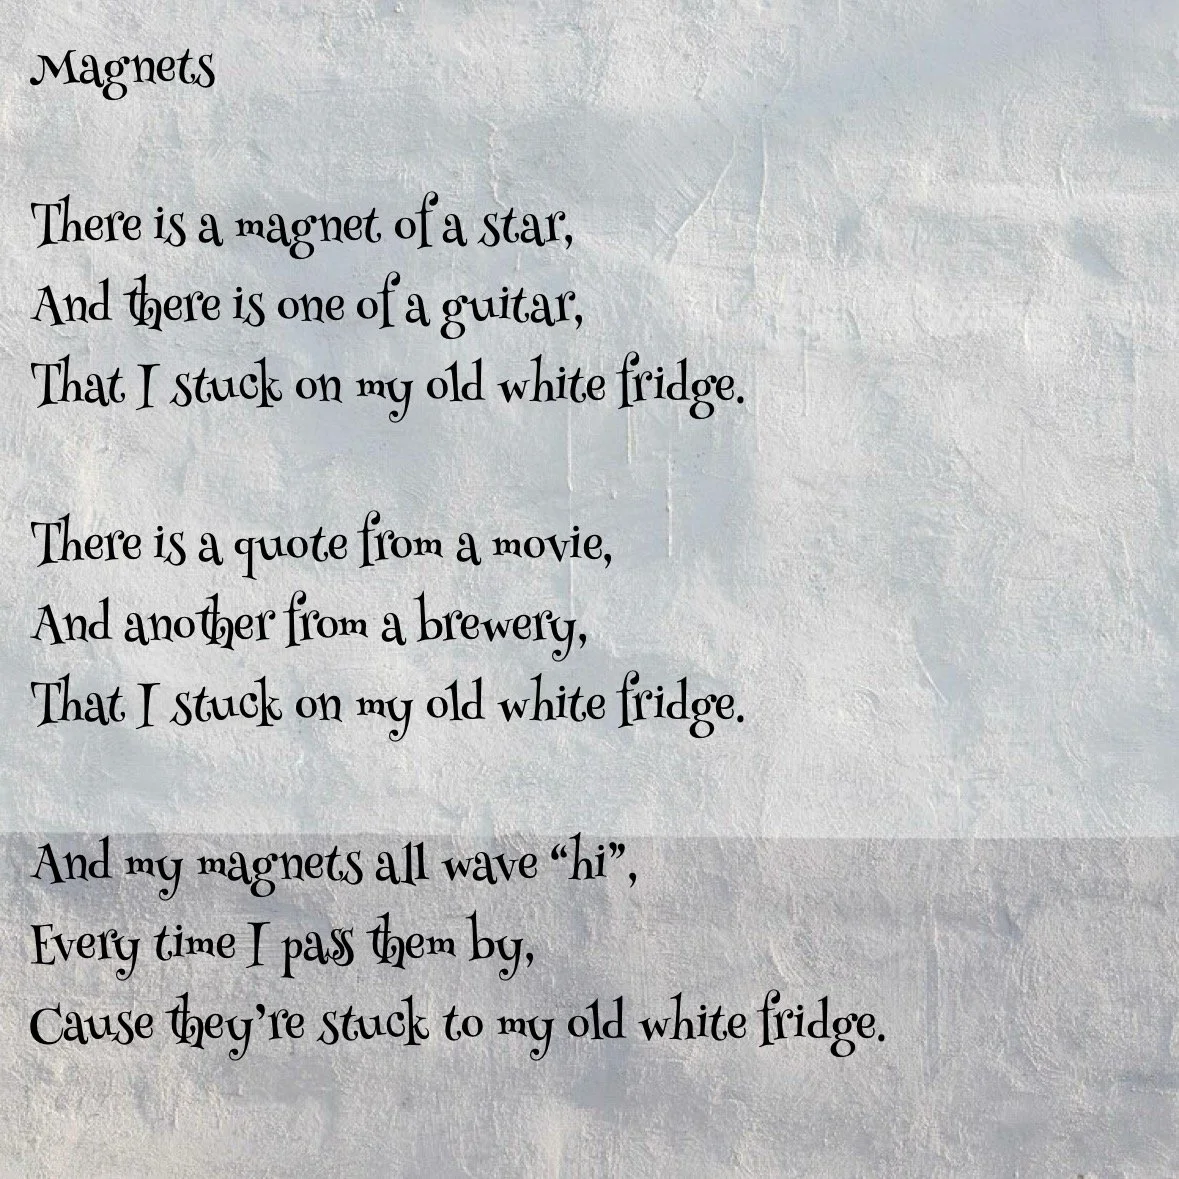 Magnets
There is a magnet of a star,
And there is one of a guitar,
That I stuck on my old white fridge.
There is a quote from a movie,
And another from a brewery,
That I stuck on my old white fridge.
And my magnets all wave “hi”,
Every time I pass them by,
Cause they’re stuck to my old white fridge.